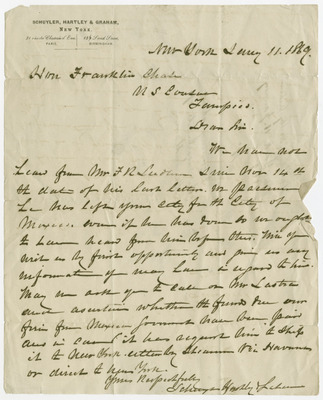 SCHUYLER, HARTLEY & GRAHAM,
NEW YORK.
PARIS. BIRMINGHAM.
New York Jany 11. 1869.
Hon Franklin Chase
U S Consul
Tampico.
Dear Sir.
We have not
heard from Mr F R since Nov 14th
the date of his last letter. We presume
he has left your City for the City of
Mexico. even if he has done so we ought
to have heard from him before this. Will you
write us by first opportunity and give us any
information you may have in regard to him.
May we ask you to call on Mr Lastra
and ascertain whether the funds due our
firm from Mexican government have been paid
and in case it has request him to ship
it to New York either by steamer via Havana
or direct to New York.
Yours Respectfully
Schuyler Hartley & Graham